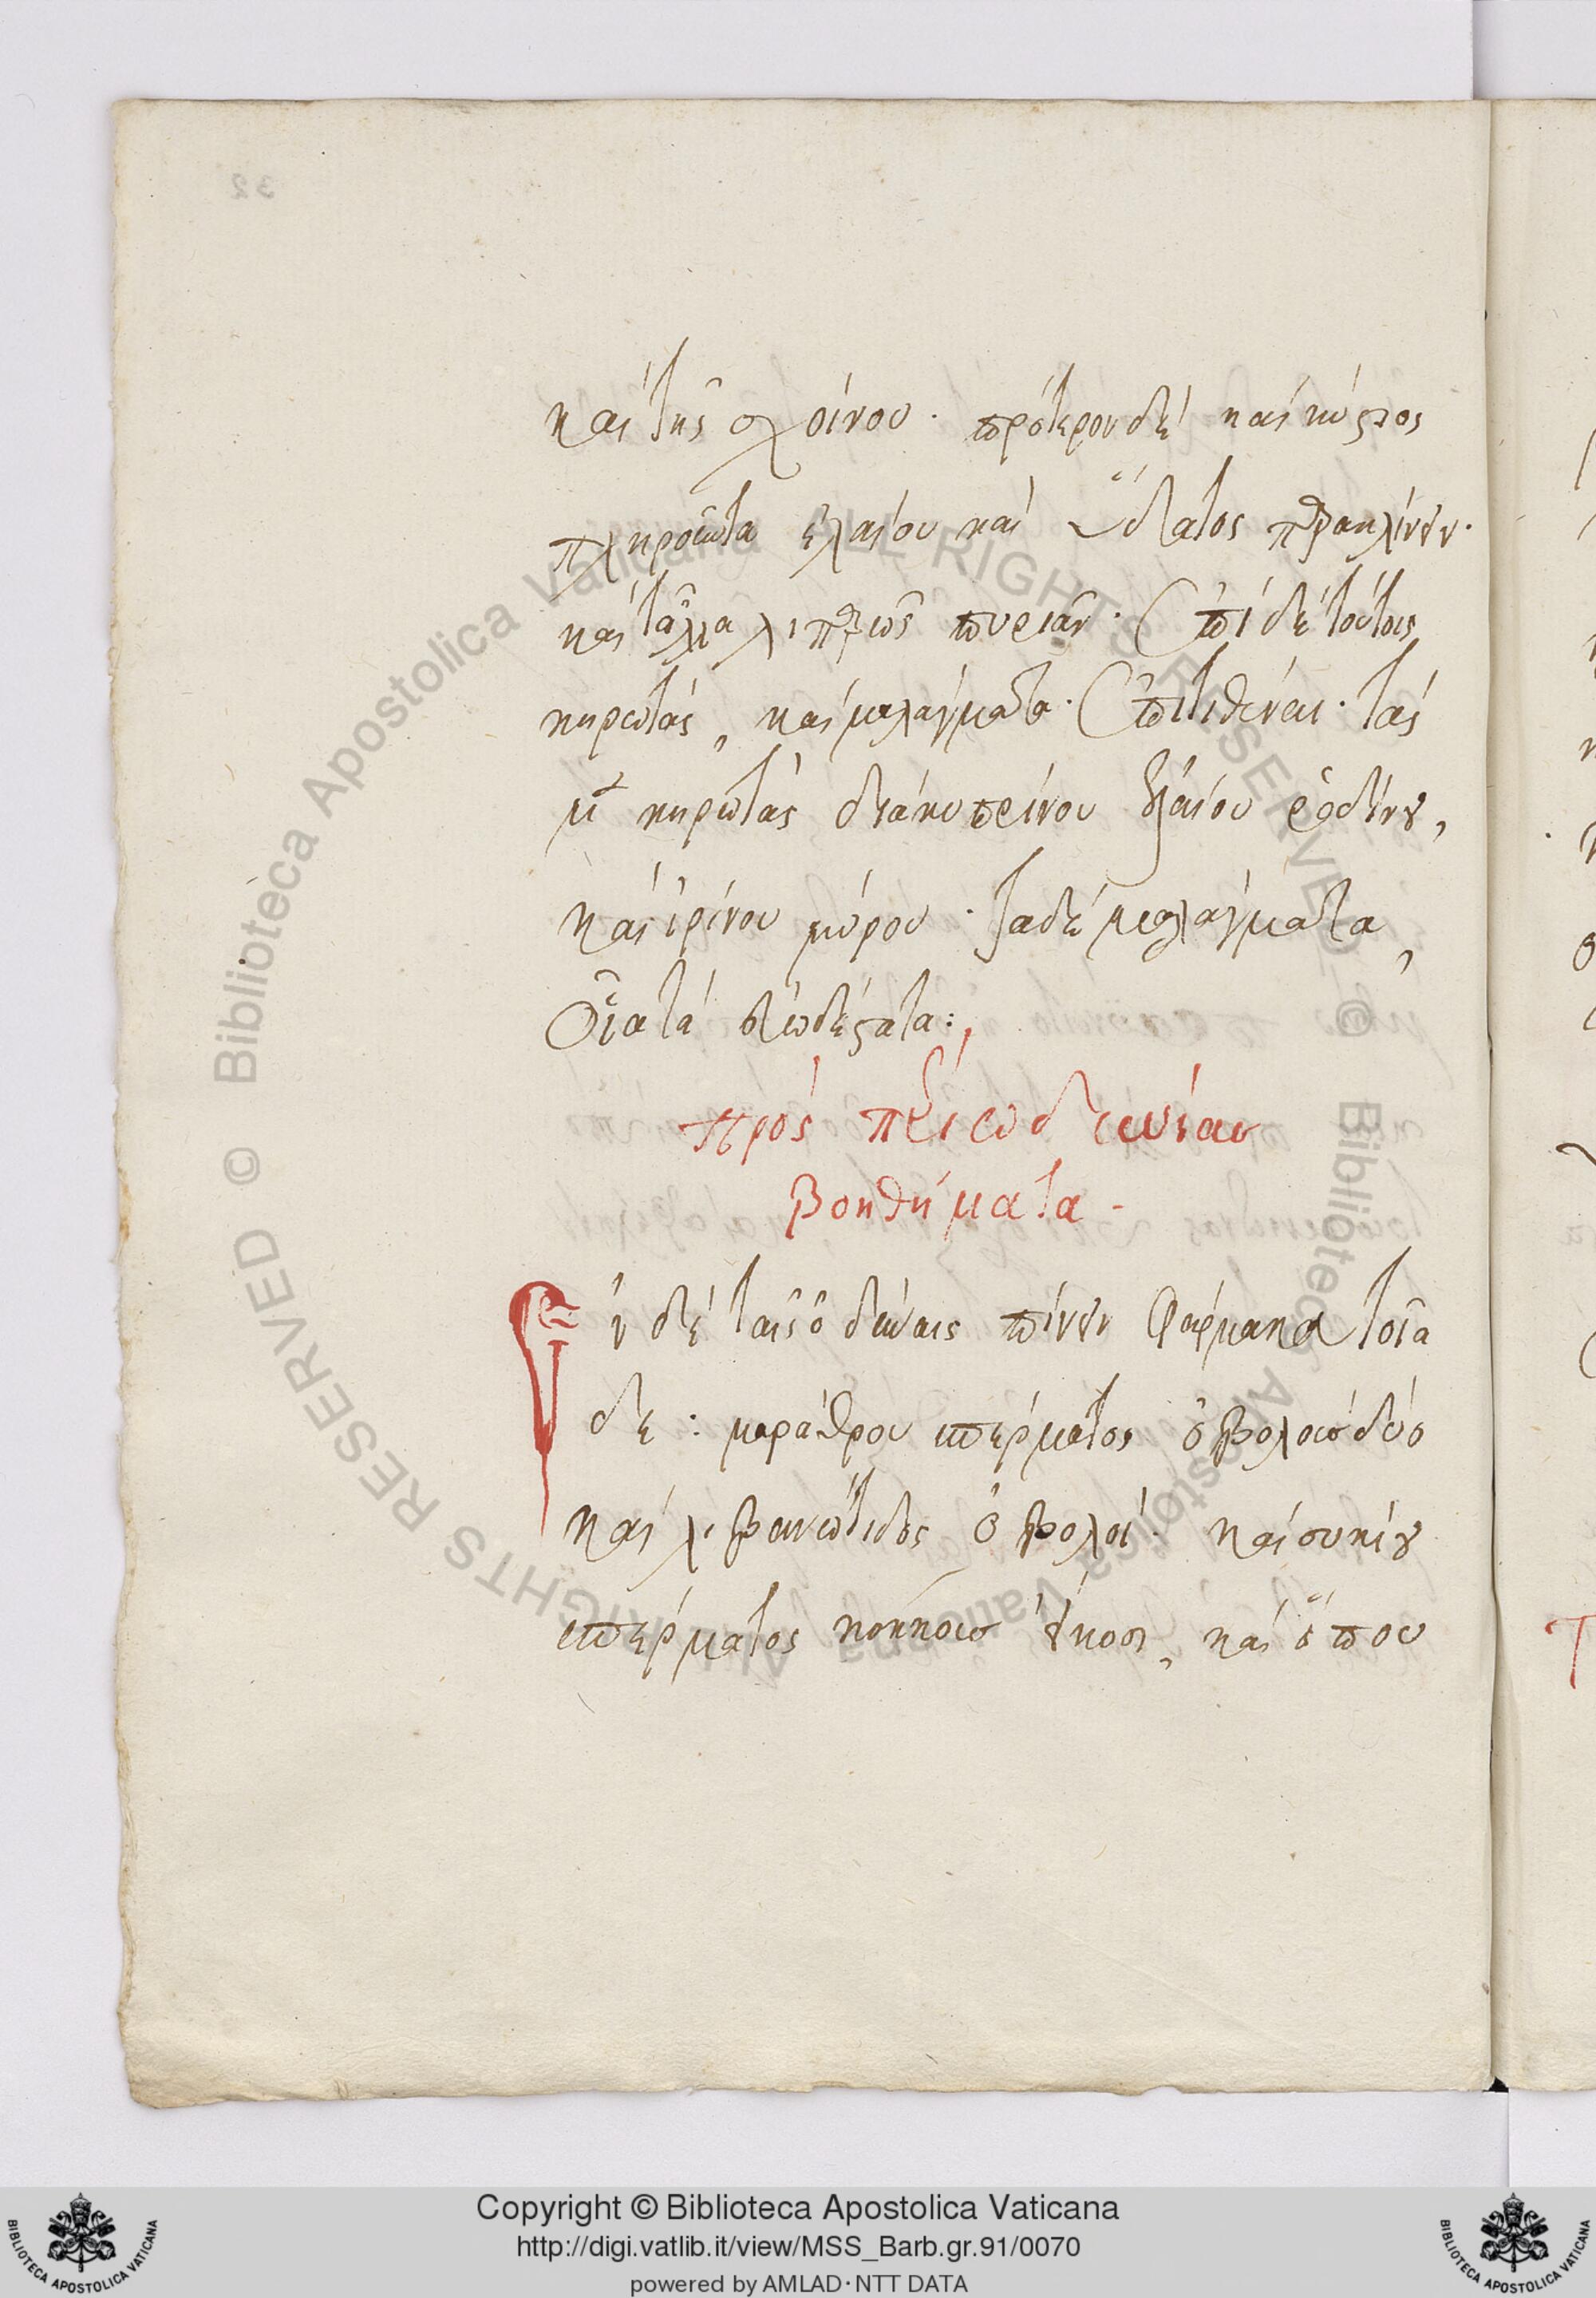 32
καὶ τῆς σχοίνου. πρότερον δὲ καὶ κύστος
πληροῦντα ἐλαίου καὶ ὕδατος παρακλίνειν.
καὶ τἄλλα λιπαρῶς πυριᾶν. ἐπὶ δὲ τούτοις
κηρωτὰς, καὶ μαλάγματα. ἐπιτιθέναι. τὰς
μὲν κηρωτὰς διὰ κυπρίνου ἐλαίου ῥοδίνου,
καὶ ἰρίνου μύρου. τὰ δὲ μαλάγματα,
οἷα τὰ εὐωδέστατα:
πρὸς περιωδυνίας
βοηθήματα.
Ἐν δὲ ταῖς ὀδύναις πίνειν φάρμακα τοιά
δε: μαράθρου σπέρματος ὀβολοὺς δύο
καὶ λιβανωτίδος ὀβολοί. καὶ συκίου
σπέρματος κόκκους εἴκοσι, καὶ ὅπου
Copyright © Biblioteca Apostolica Vaticana
http://digi.vatlib.it/view/MSS_Barb.gr.91/0070
powered by AMLAD·NTT DATA
BIBLIOTECA APOSTOLICA VATICANA
BIBLIOTECA APOSTOLICA VATICANA
© Biblioteca Apostolica Vaticana ALL RIGHTS RESERVED
© Biblioteca Apostolica Vaticana ALL RIGHTS RESERVED